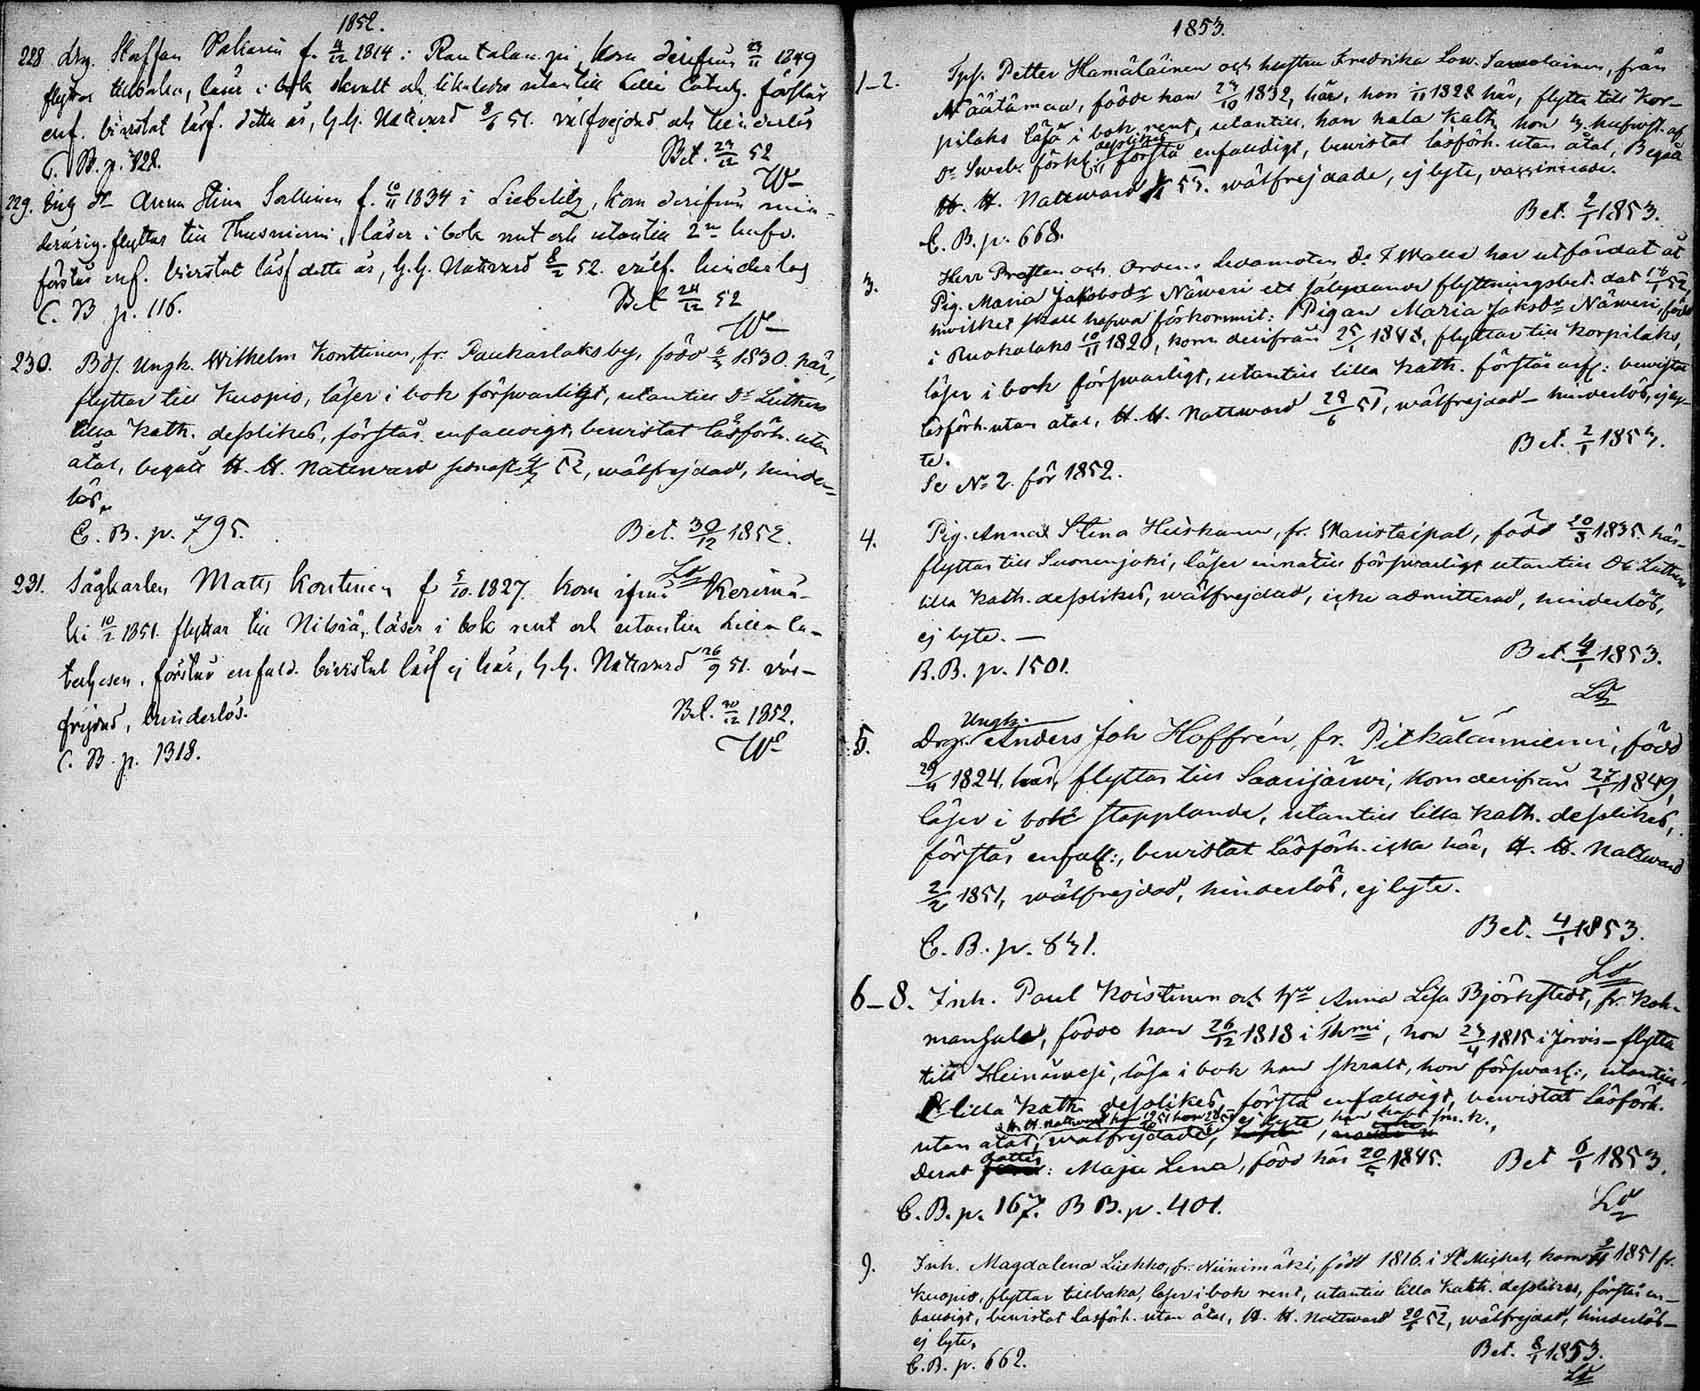 1852.
228 Drg. Staffan Pakarin f. 4/12 1814 i Rautalampi, kom derifrån 23/11 1849
flyttar tillbaka, läser i bok skralt och likaledes utantill Lilla Catech. förstår
enf. bivistat läsf. detta år, H.H. Nattvard 8/6 51. välfrejdad och hinderlös
C. B. p. 828. Bet. 29/12 52
W
229. Enk Dr Anna Stina Sallinen f. 10/11 1834 i Liebelitz, kom derifrån min-
derårig. flyttas till Thusniemi, läser i bok rent och utantill 2ne hufv.
förstår enf. bivistat läsf detta år, H.H. Nattvard 8/2 52. välf. hinderlös
C. B p. 116. Bet 24/12 52
W
230. Bdf. Ungk. Wilhelm Konttinen, fr. Paukarlaks by, född 6/5 1830. här,
flyttar till Kuopio, läser i bok förswarligt, utantill Dr Luthers
lilla Kath. desslikes, förstår enfaldigt, bewistat läsförh. utan
åtal, begått H. H. Nattward senast 4/7 52, wälfrejdad, hinder-
lös.
C. B. p. 795. Bet. 30/12 1852.
231. Sågkarlen Matts Kontinen f 5/10 1827. kom ifrån Kerimä-
ki 10/2 1851. flyttar till Nilsiä, läser i bok rent och utantill Lilla Ca-
techesen. förstår enfald. bivistat läsf ej här, H.H. Nattvard 26/9 51. väl-
frejdad, hinderlös. Bet. 30/12 1852.
C. B. p. 1318. W
1853.
1-2. Petter Hämäläinen och hustru Fredrika Low. Sawolainen, från
Näätämaa, födde han 24/10 1832, här, hon 1828 här, flytta till Kor-
pilaks läsa i bok rent, utantill, han hala Kath. hon hufwst. af
Dr Sweb. förkl. desslikes förstå enfaldigt, bewistat läsförh. utan åtal, Begått
H. H. Nattward 52. wälfrejdade, ej lyte, vaxinerade.
Bet. 2/1 1853.
C. B. p. 668.
3. Herr Prosten och Ordens Ledamoten Dr F Walle har utfärdat åt
Pig. Maria Jakobsdr Näweri ett sålydande flyttningsbet. dat 52,
hwilket skall hafwa förkommit: Pigan Maria Jaksdr Näweri, född
i Ruokolaks 10/11 1820, kom derifrån 25/1 1848, flyttar till Korpilaks,
läser i bok förswarligt, utantill lilla Kath. förstår enf: bewistat
läsförh. utan åtal, H. H. Nattward 29/6 51, wälfrejdad - hinderlös, ej ly-
te. Bet. 2/1 1853.
Se No 2. för 1852.
4. Pig. Anna Stina Huiskonen, fr. Maustaipal, född 20/8 1835 här-
flyttar till Suonenjoki, läser innatill förswarligt utantill Dr Luthers
lilla Kath. desslikes, wälfrejdad, icke admitterad, hinderlös,
ej lyte. -
B. B. p. 1501. Bet. 4/1 1853.
5. Drg. Ungk. Anders Joh Hoffrén, fr. Pitkälänniemi, född
29/11 1824, här, flyttar till Saarijärwi, kom derifrån 27/1 1849,
läser i bok stapplande, utantill lilla Kath. desslikes,
förstår enfall:, bewistat läsförh. icke här, H. H. Nattward
2/2 1851, wälfrejdad, hinderlös, ej lyte.
Bet. 4/1 1853.
C. B. p. 831.
6-8. Inh. Paul Koistinen och Hu Anna Lisa Björkstedt, fr. Koh-
mansalo, födde han 26/12 1818 i Thmi, hon 23/4 1815 i Jorois - flytta
till Heinäwesi, läsa i bok han skralt, hon förswarl:, utantill
lilla Kath. desslikes, förstå enfaldigt, bewistat läsförh.
utan åtal, wälfrejdade, ej lyte,
Deras dotter: Maja Lena, född här 20/5 1845. Bet 6/1 1853.
C. B. p. 167. B B. p. 401.
9. Inh. Magdalena Liukko, fr. Niinimäki, född 1816. i St Michel, kom 1851 fr.
Kuopio, flyttar tillbaka, läser i bok rent, utantill lilla Kath. desslikes, förstår en-
faldigt, bewistat läsförh. utan åtal, H. H. Nattward 20/6 52, wälfrejdad, hinderlös -
ej lyte.
C. B. p. 662. Bet. 8/1 1853.